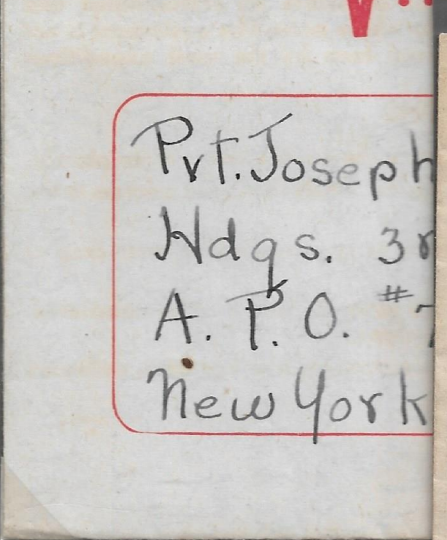 Pvt. Joseph
Hdqs. 3r
A. P. O. #7
New York